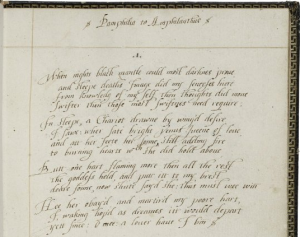 Pamphilia to Amphilanthus
1.
When nights black mantle could most darknes prove
and sleepe deaths Image did my senceses hiere
from knowledg of my self, then thoughts did move
swifter then those most swiftnes need require
In sleepe, a Chariot drawne by wing'd desire
I sawe: wher sate bright Venus Queene of love
and att her feete her sonne, still adding fire
to burning hearts wch she did hold above
Butt one hart flaming more then all the rest
the goddess held, and putt itt to my brest
deare sonne, now shutt sayd she: thus must wee win
Hee her obay'd, and martir'd my poore hart,
I, waking hop'd as dreames itt would depart
yett since: O mee: a lover have I bin